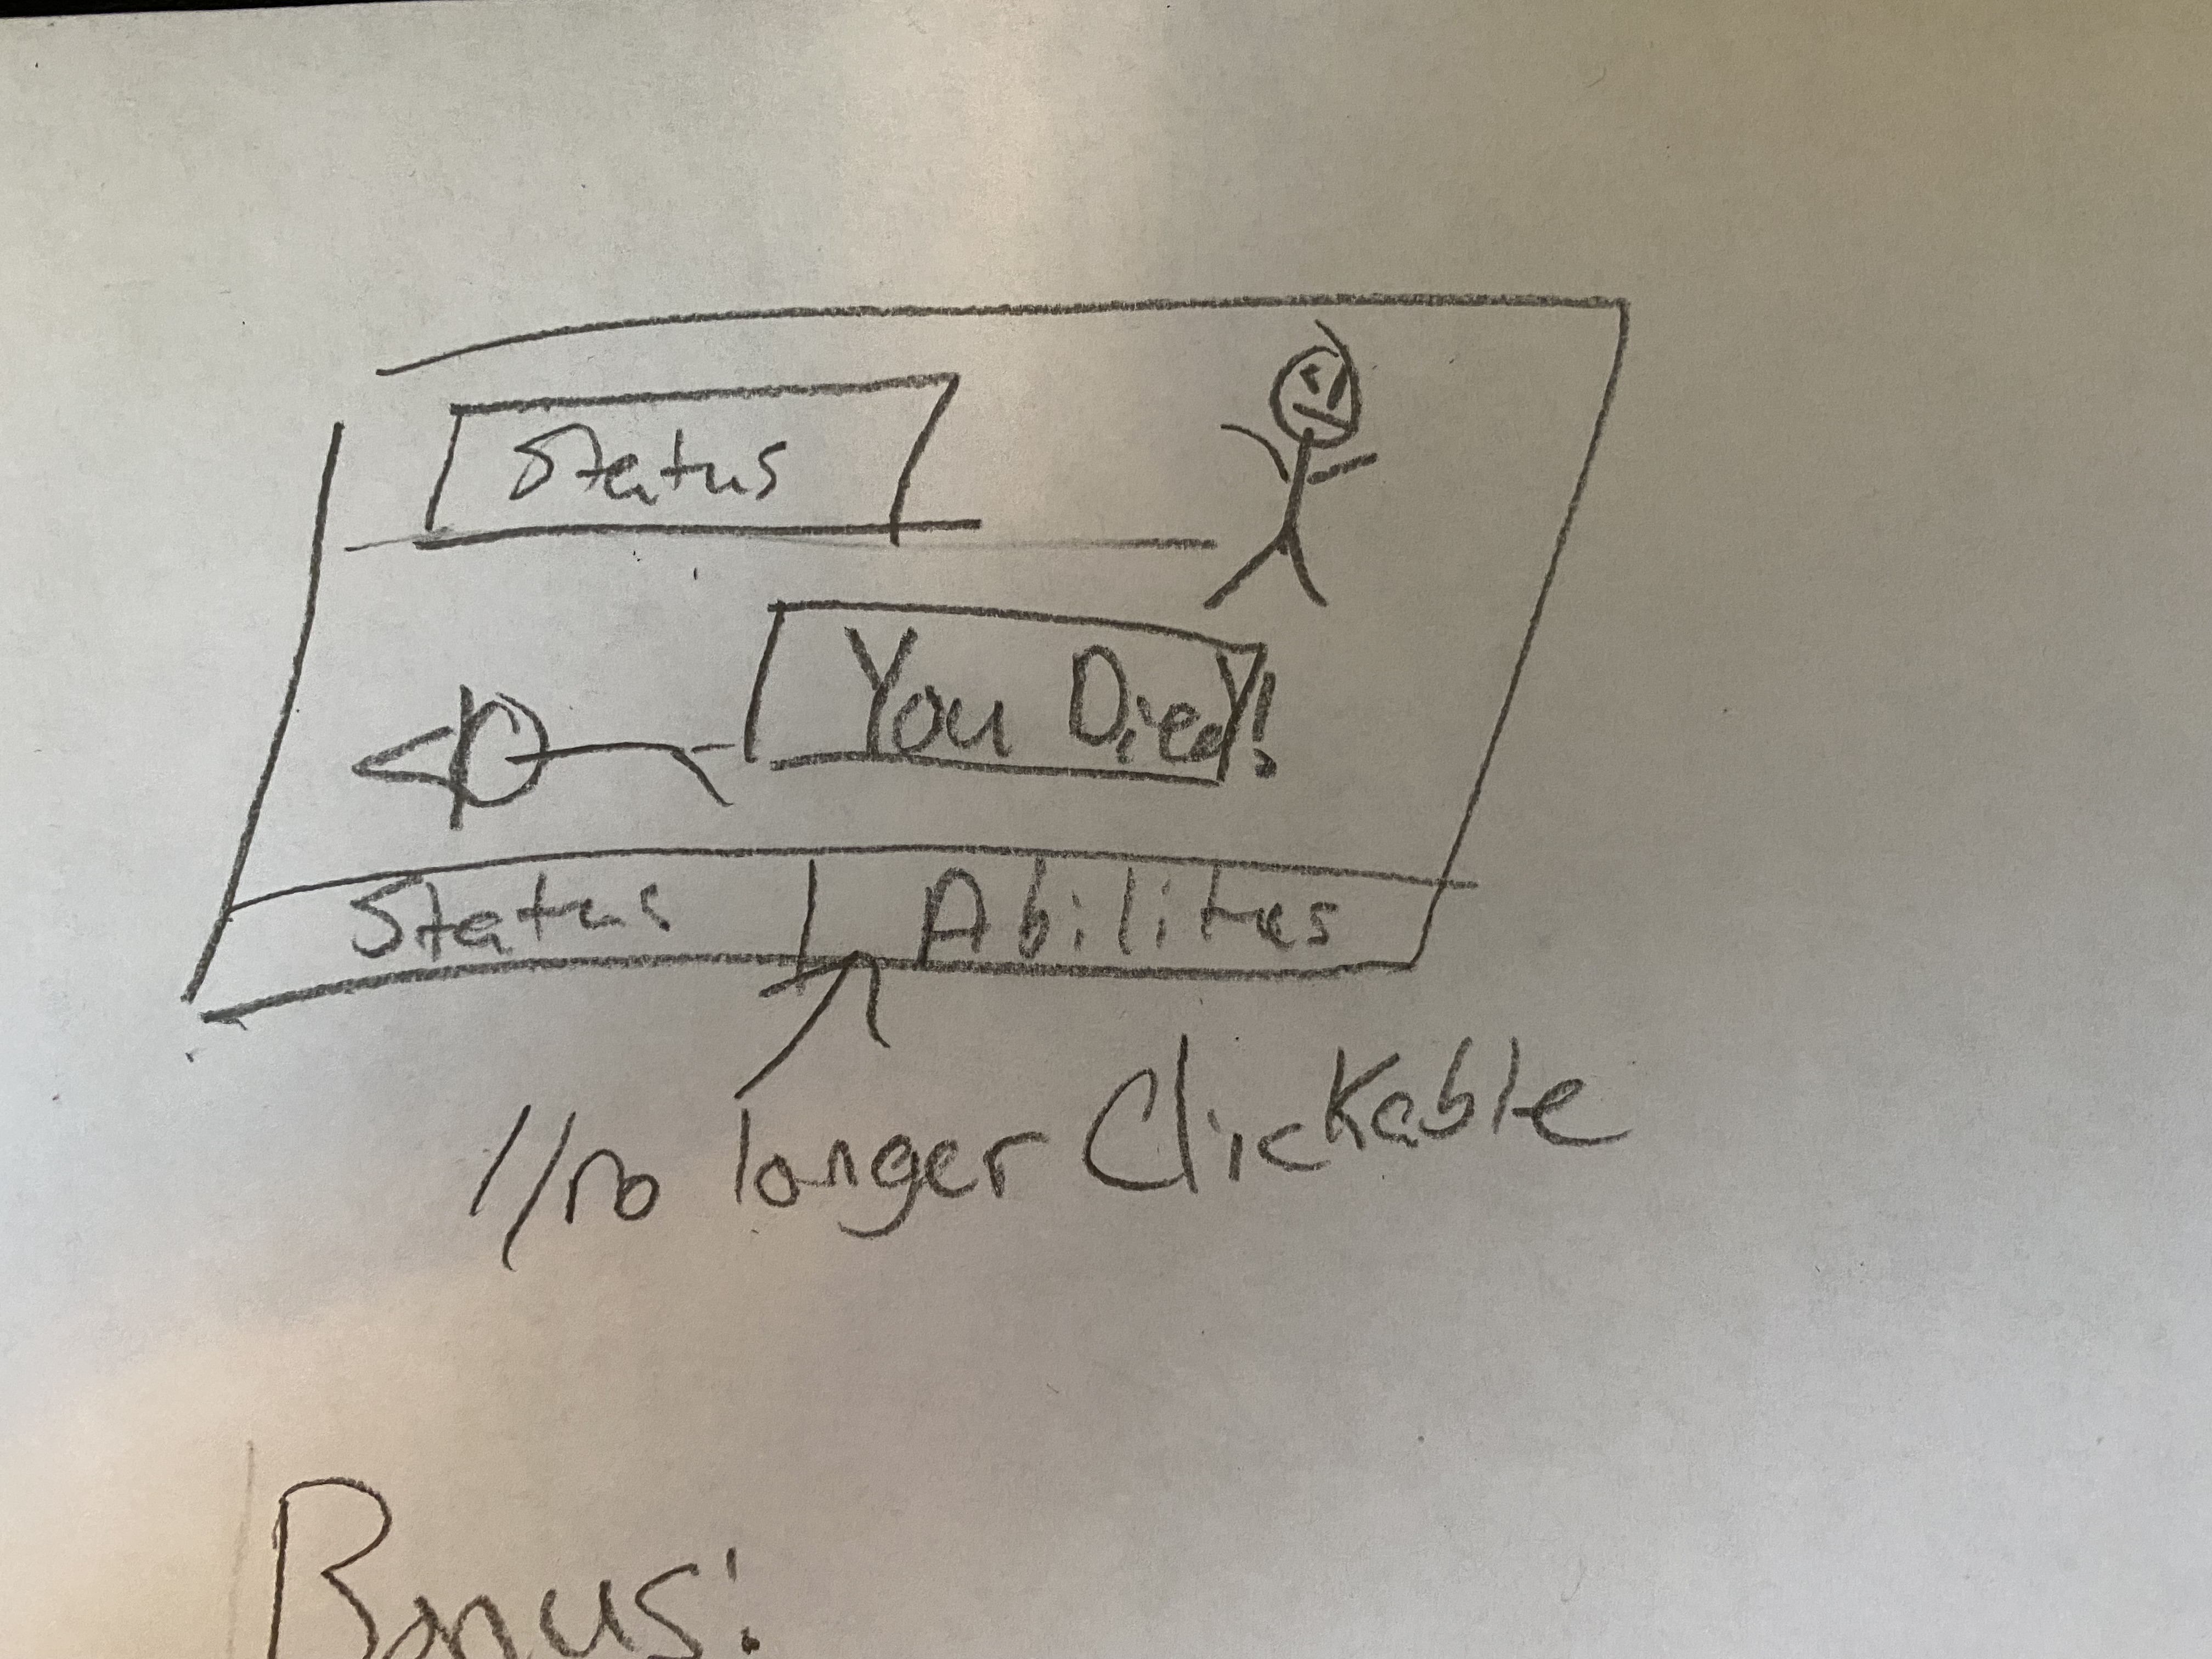 Status
You Died!
Status Abilites
//no longer Clickable
Bonus: